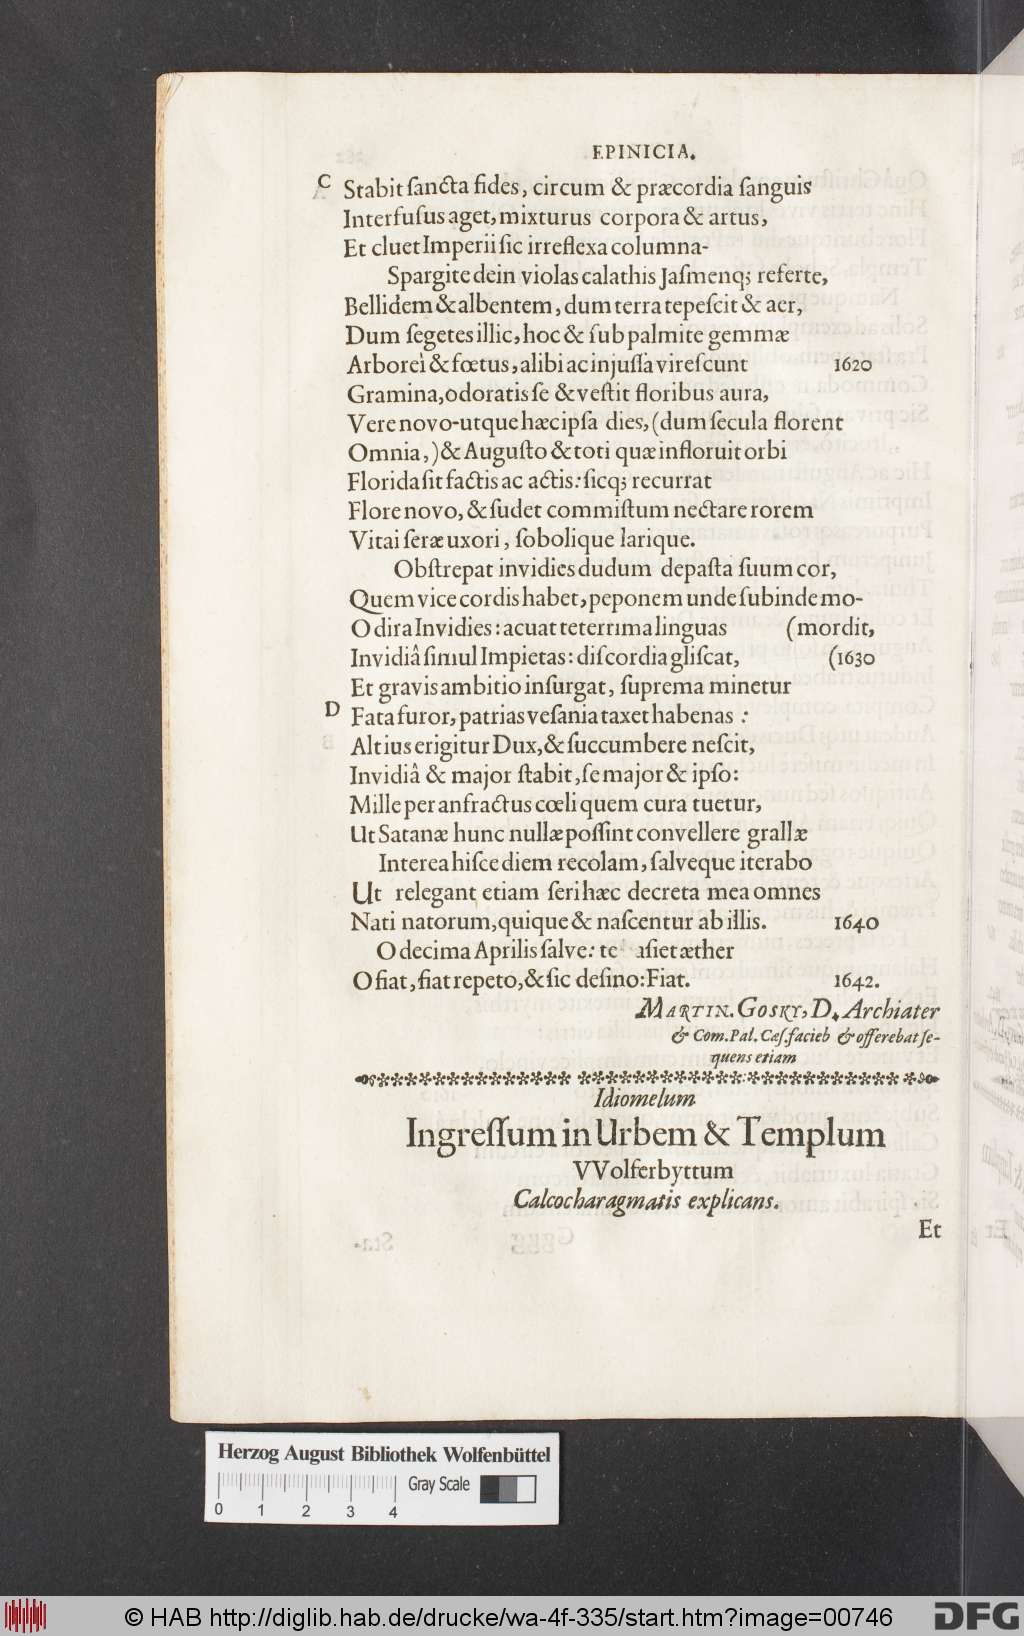 EPINICIA.
C Stabit ſancta fides, circum & præcordia ſanguis
Interfuſus aget, mixturus corpora & artus,
Et cluet Imperii ſic irreflexa columna-
Spargite dein violas calathis Jaſmenq; referte,
Bellidem & albentem, dum terra tepeſcit & aer,
Dum ſegetes illic, hoc & ſub palmite gemmæ
Arborei & fœtus, alibi ac injuſſa vireſcunt 1620
Gramina, odoratis ſe & veſtit floribus aura,
Vere novo-utque hæc ipſa dies, (dum ſecula florent
Omnia,) & Auguſto & toti quæ infloruit orbi
Florida ſit factis ac actis: ſicq; recurrat
Flore novo, & ſudet commiſtum nectare rorem
Vitai ſeræ uxori, ſobolique larique.
Obſtrepat invidies dudum depaſta ſuum cor,
Quem vice cordis habet, peponem unde ſubinde mo-
O dira Invidies: acuat teterrima linguas (mordit,
Invidiâ ſimul Impietas: diſcordia gliſcat, (1630
Et gravis ambitio inſurgat, ſuprema minetur
D Fata furor, patrias veſania taxet habenas :
Altius erigitur Dux, & ſuccumbere neſcit,
Invidiâ & major ſtabit, ſe major & ipſo:
Mille per anfractus cœli quem cura tuetur,
Ut Satanæ hunc nullæ poſſint convellere grallæ
Interea hiſce diem recolam, ſalveque iterabo
Ut relegant etiam ſeri hæc decreta mea omnes
Nati natorum, quique & naſcentur ab illis. 1640
O decima Aprilis ſalve: te aſiet æther
O fiat, fiat repeto, & ſic deſino: Fiat. 1642.
MARTIN. GOSKY, D. Archiater
& Com. Pal. Cæſ. facieb & offerebat ſe-
quens etiam
Idiomelum
Ingreſſum in Urbem & Templum
VVolferbyttum
Calcocharagmatis explicans.
Et
Herzog August Bibliothek Wolfenbüttel
Gray Scale
0 1 2 3 4
© HAB http://diglib.hab.de/drucke/wa-4f-335/start.htm?image=00746
DFG